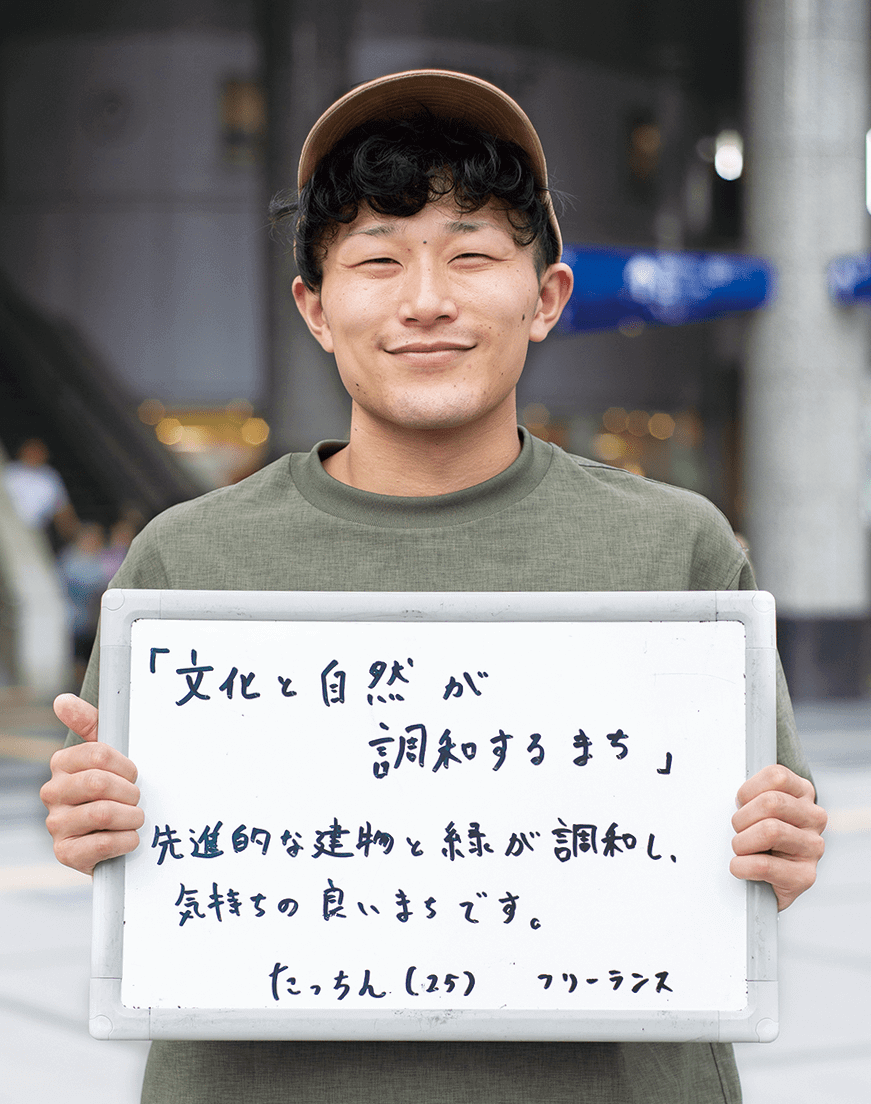 「文化と自然が
調和するまち」
先進的な建物と緑が調和し、
気持ちの良いまちです。
たっちん(25) フリーランス